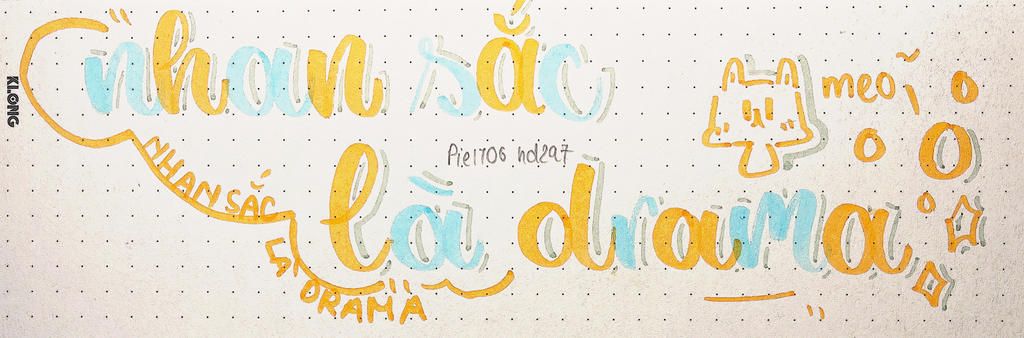 nhan sắc
meo~
Pie1706 hd2a7
là drama
NHAN SẮC
LÀ
DRAMA
KLONG